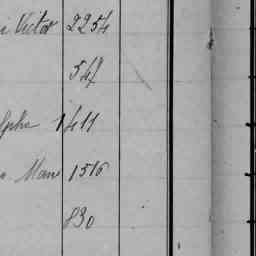 i Victor 2254
547
lphe 1411
s. Man 1516
830